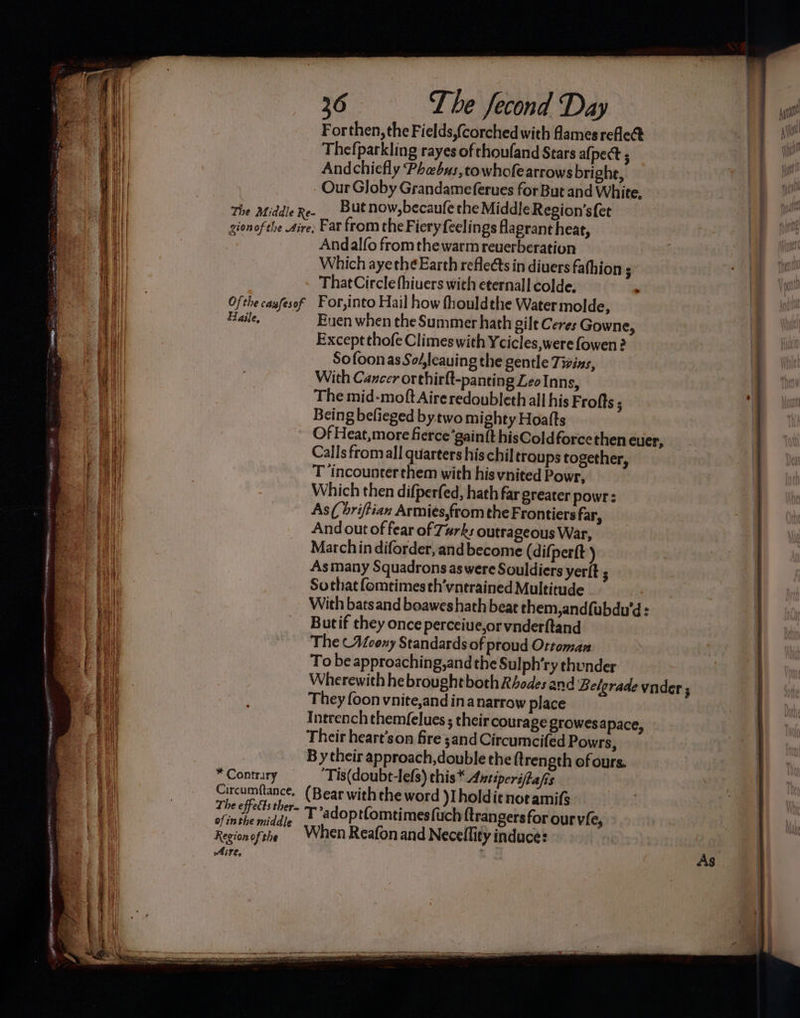 36 The ſecond Day
For then, the Fields, ſcorched with flames reflect
The ſparkling rayes of thouſand Stars aſpect ;
And chiefly Phœbus, to whoſe arrows bright,
Our Globy Grandame ſerues for But and White.
The Middle Re- But now, becauſe the Middle Region's ſet
gion of the Aire; Far from the Fiery ſeelings flagrant heat,
And alſo from the warm reuerberation
Which aye the Earth reflects in diuers faſhion ;
That Circle ſhiuers with eternall colde.
Of the cauſes of For, into Hail how ſhould the Water molde,
Haile, Euen when the Summer hath gilt Ceres Gowne,
Except thoſe Climes with Ycicles, were ſowen ?
So ſoon as Sol, leauing the gentle Twins,
With Cancer or thirſt-panting Leo Inns,
The mid-moſt Aire redoubleth all his Froſts ;
Being beſieged by two mighty Hoaſts
Of Heat, more fierce 'gainſt his Cold force then euer,
Calls from all quarters his chil troups together,
T'incounter them with his vnited Powr,
Which then diſperſed, hath far greater powr :
As Chriſtian Armies, from the Frontiers far,
And out of fear of Turks outrageous War,
March in diſorder, and become (diſperſt)
As many Squadrons as were Souldiers yerſt ;
So that ſomtimes th'vntrained Multitude
With bats and boawes hath beat them, and ſubdu'd :
But if they once perceiue, or vnderſtand
The Moony Standards of proud Ottoman
To be approaching, and the Sulph'ry thunder
Wherewith he brought both Rhodes and Belgrade vnder ;
They ſoon vnite, and in a narrow place
Intrench themſelues ; their courage growes apace,
Their heart's on fire ; and Circumciſed Powrs,
By their approach, double the ſtrength of ours.
* Contrary 'Tis (doubt-leſs) this * Antiperiſtaſis
Circumſtance. (Bear with the word) I hold it not amiſs
The effects ther- T'adopt ſomtimes ſuch ſtrangers for our vſe,
of in the middle When Reaſon and Neceſſity induce :
Region of the
Aire.
As